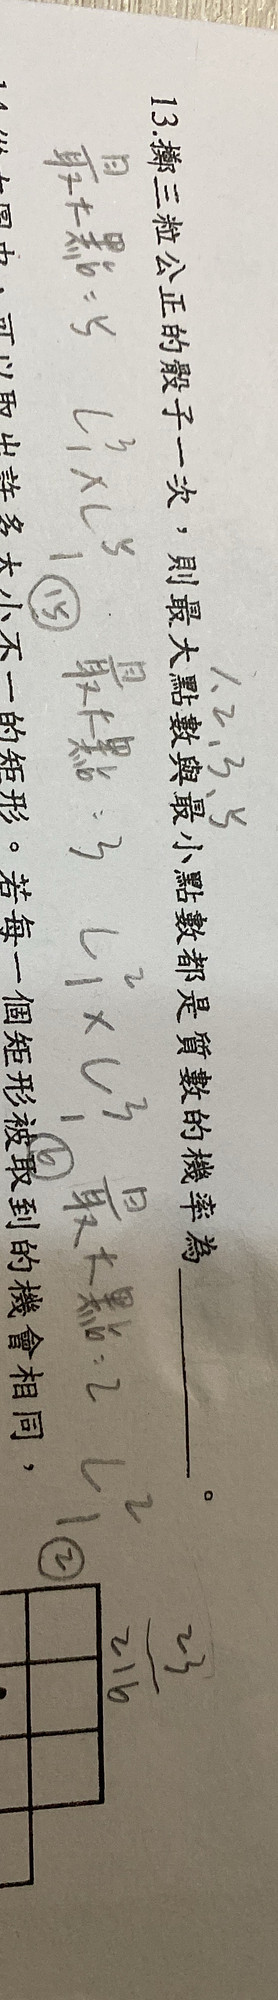 1、2、3、5
13.擲三粒公正的骰子一次，則最大點數與最小點數都是質數的機率為________。
最大點=5 C³₁×C⁵₁ ⑮ 最大點=3 C²₁×C³₁ ⑥ 最大點=2 C²₁ ②
23/216
可以取出許多大小不一的矩形。若每一個矩形被取到的機會相同，